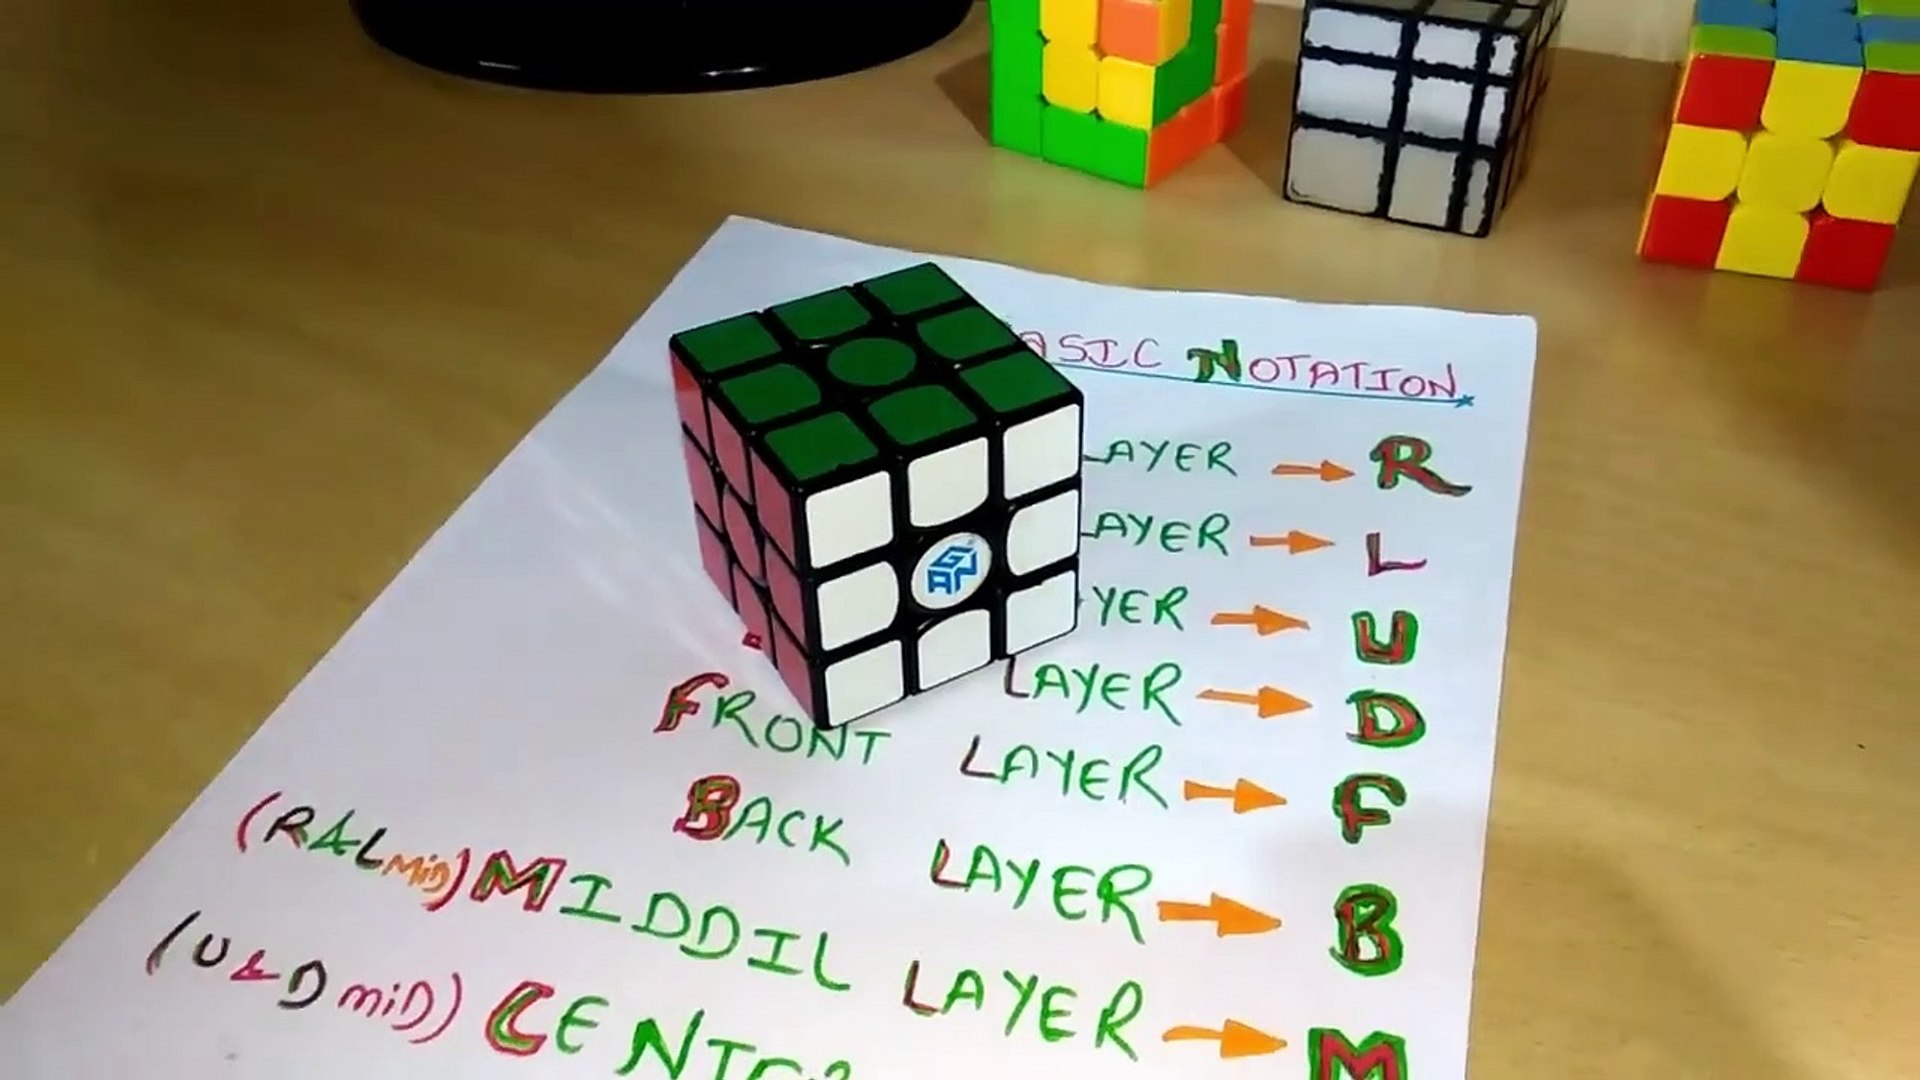 ASIC NOTATION
LAYER → R
LAYER → L
YER → U
LAYER → D
FRONT LAYER → F
BACK LAYER → B
(R&L MiD) MIDDIL LAYER → M
(U & D miD) CENTE
GAN